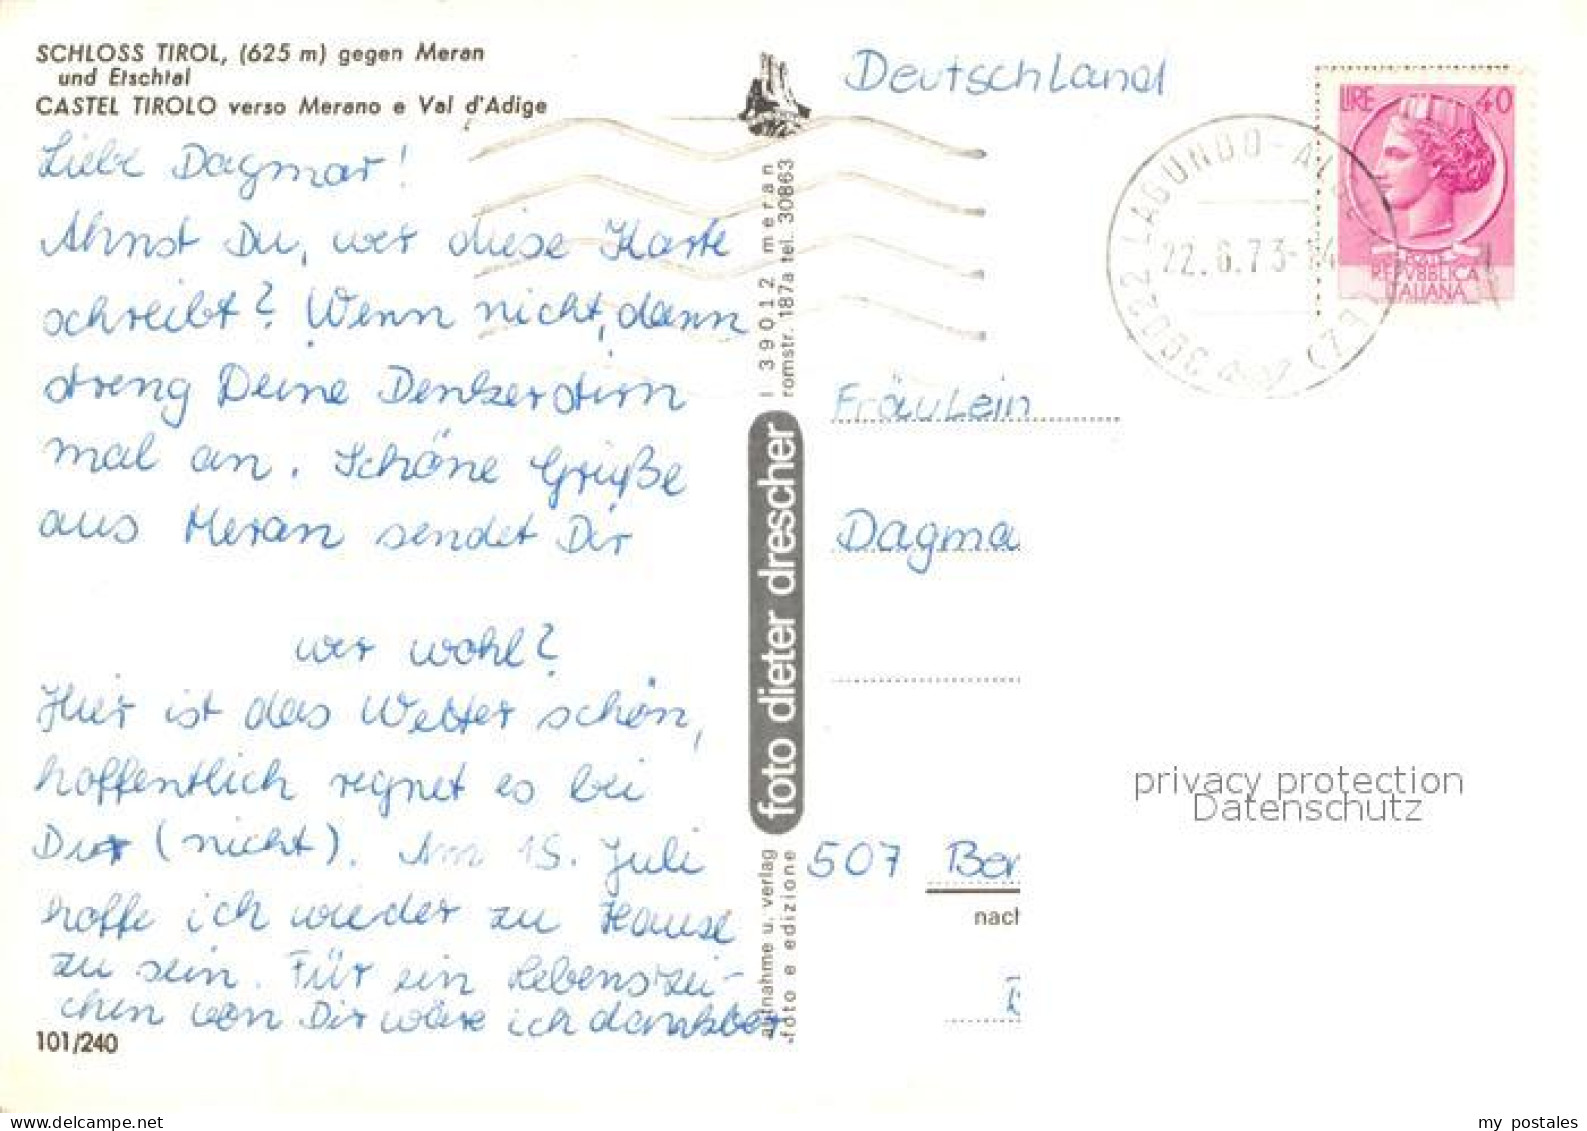 SCHLOSS TIROL, (625 m) gegen Meran
und Etschtal
CASTEL TIROLO verso Merano e Val d'Adige
Liebe Dagmar!
Ahnst Du, wer diese Karte
schreibt? Wenn nicht, dann
streng Deine Denkerstirn
mal an. Schöne Grüße
aus Meran sendet Dir
wer wohl?
Hier ist das Wetter schön,
hoffentlich regnet es bei
Dir (nicht). Am 15. Juli
hoffe ich wieder zu Hause
zu sein. Für ein Lebenszei-
chen von Dir wäre ich dankbar
101/240
I 39012 meran
romstr. 187a tel. 30863
foto dieter drescher
aufnahme u. verlag
foto e edizione
Deutschland
LIRE 40
POSTE
REPVBBLICA
ITALIANA
39022 LAGUNDO-
22.6.73-14
(BZ)
Fräulein
Dagma
507 Ber
nach
privacy protection
Datenschutz
my postales